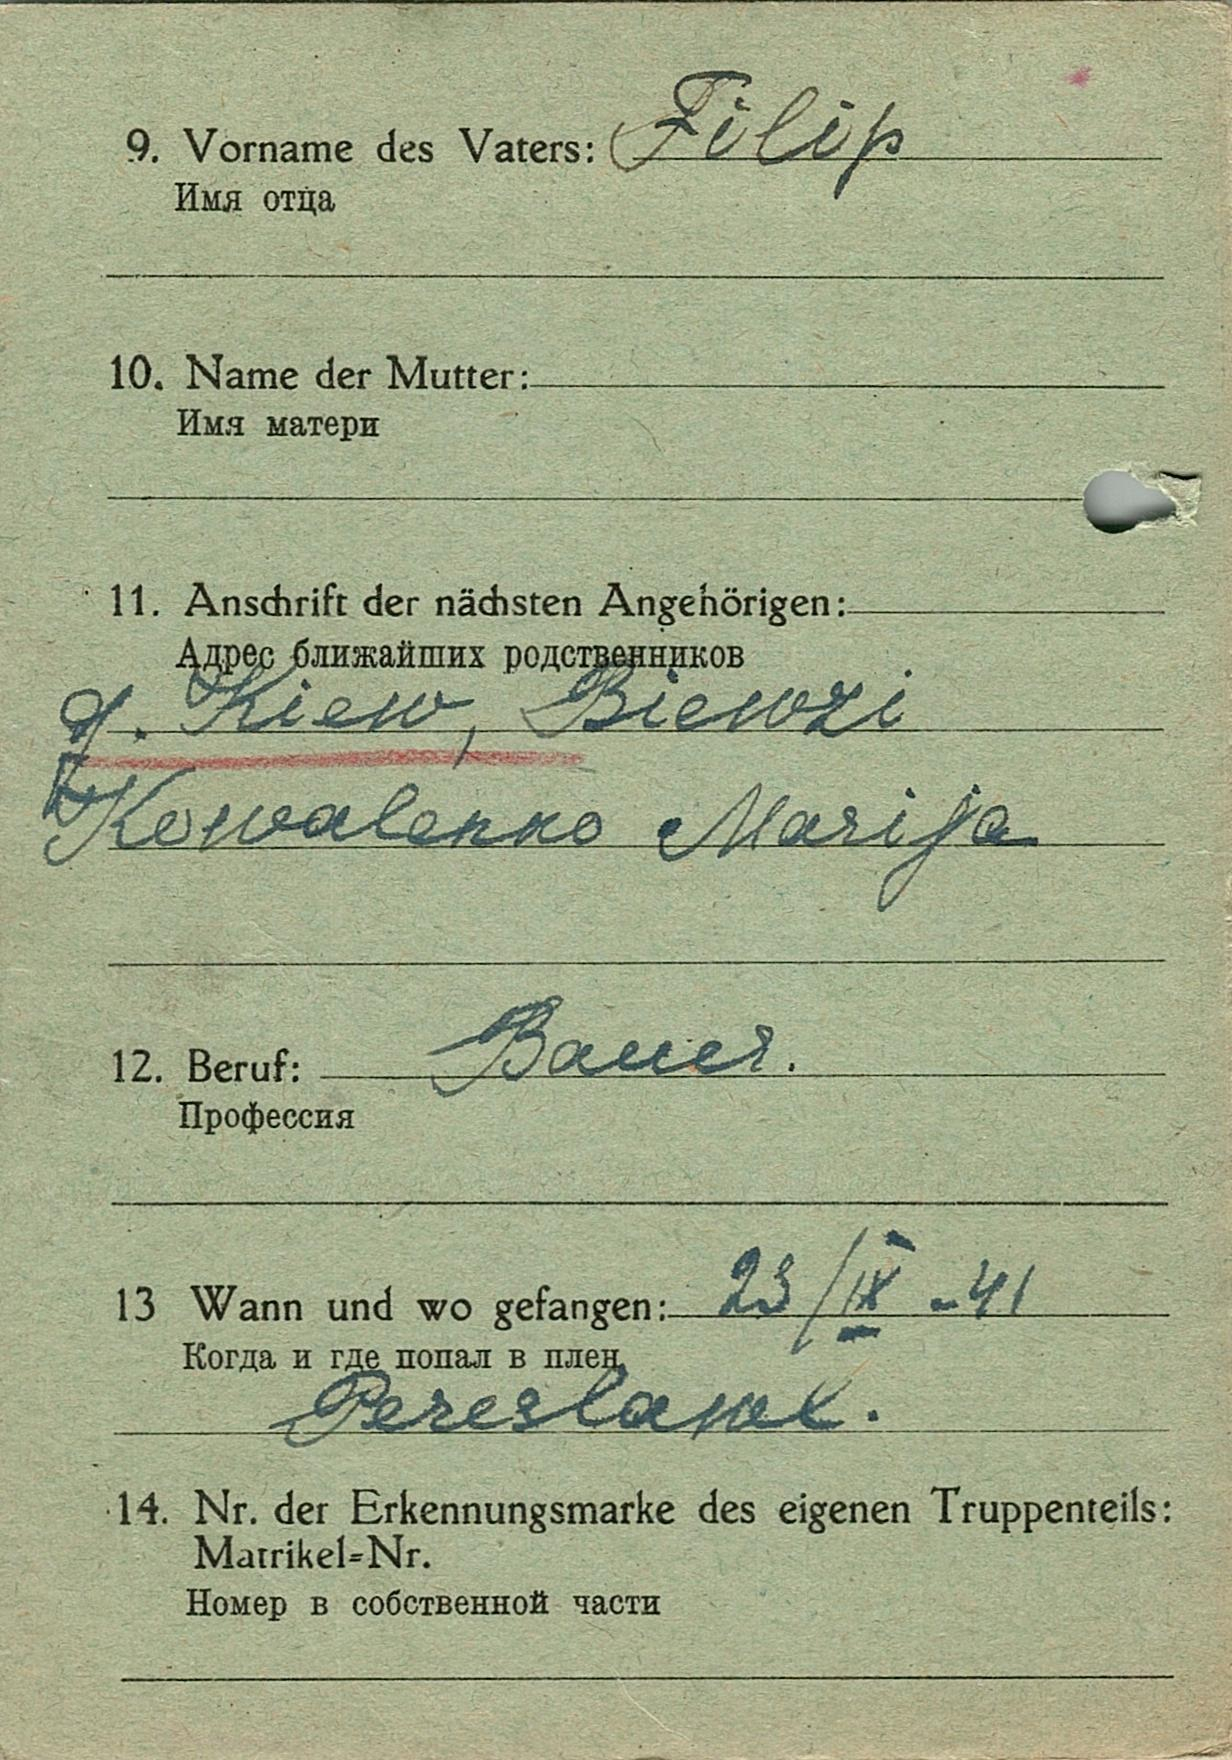 9. Vorname des Vaters: Filip
Имя отца
10. Name der Mutter:
Имя матери
11. Anschrift der nächsten Angehörigen:
Адрес ближайших родственников
g. Kiew, Biewzi
Kowalenko Marija
12. Beruf: Bauer.
Профессия
13 Wann und wo gefangen: 23/IX -41
Когда и где попал в плен
Pereslawl.
14. Nr. der Erkennungsmarke des eigenen Truppenteils:
Matrikel=Nr.
Номер в собственной части